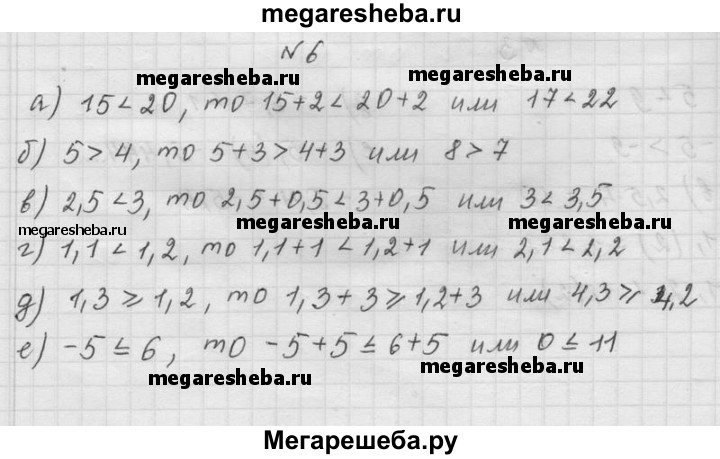 megaresheba.ru
№6
megaresheba.ru megaresheba.ru
а) 15<20, то 15+2<20+2 или 17<22
б) 5>4, то 5+3>4+3 или 8>7
в) 2,5<3, то 2,5+0,5<3+0,5 или 3<3,5
megaresheba.ru megaresheba.ru megaresheba.ru
г) 1,1<1,2, то 1,1+1<1,2+1 или 2,1<2,2
д) 1,3⩾1,2, то 1,3+3⩾1,2+3 или 4,3⩾4,2
е) -5≤6, то -5+5≤6+5 или 0≤11
megaresheba.ru megaresheba.ru
Мегарешеба.ру